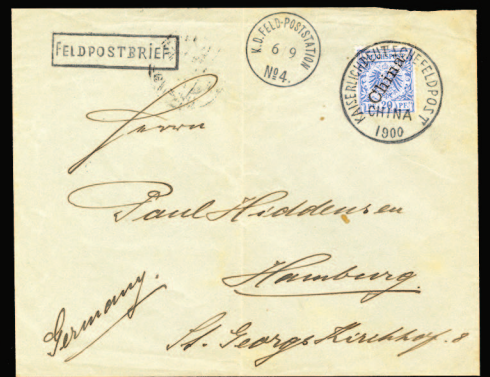 FELDPOSTBRIEF
K.D. FELD-POSTSTATION
6 9
No 4.
KAISERLICH DEUTSCHE FELDPOST
China
20
CHINA
1900
Herrn
Paul Hiddensen
Hamburg.
Germany.
St. Georgs Kirchhof. 8